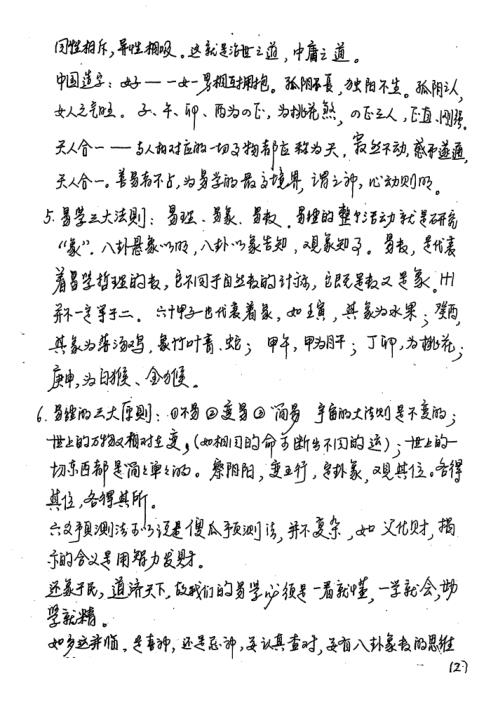 同性相斥，异性相吸。这就是治世之道，中庸之道。
中国造字：好——一女一男相互拥抱。孤阴不長，独阳不生。孤阴之人，
女人之气旺。子、午、卯、酉为四正，为桃花煞，四正之人，正直、刚强。
天人合一——与人相对应的一切事物都应称为天，寂然不动，感而遂通，
天人合一。善易者不占，为易学的最高境界，谓之神，心动则明。
5. 易学三大法则：易理、易象、易数。易经的整个活动就是研究
“象”。八卦悬象以明，八卦以象告知，观象知了。易数，是代表
着易学哲理的数，它不同于自然数的计法，它既是数又是象。1+1
并不一定等于二。六十甲子也代表着象，如壬寅，其象为水果；癸酉，
其象为落汤鸡，象竹叶青、蛇；甲午，甲为肝；丁卯，为桃花；
庚申，为白猴、金猴。
6. 易经的三大原则：①不易②变易③简易 宇宙的大法则是不变的；
世上的万物又相对在变，(如相同的命可断出不同的运)；世上的一
切东西都是简简单单的。察阴阳，变五行，定卦象，观其位。各得
其位，各得其所。
六爻预测法可以说是傻瓜预测法，并不复杂，如 父化财，揭
示的含义是用智力发财。
还象于民，道济天下，故我们的易学必须是一看就懂，一学就会，
学就精。
如多兴并临，是喜神，还是忌神，要认真查对，要有八卦象数的思维
(2)